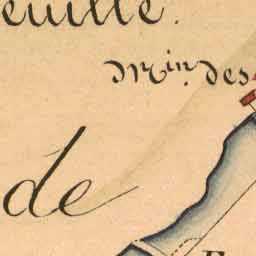 euille.
Min. des
de